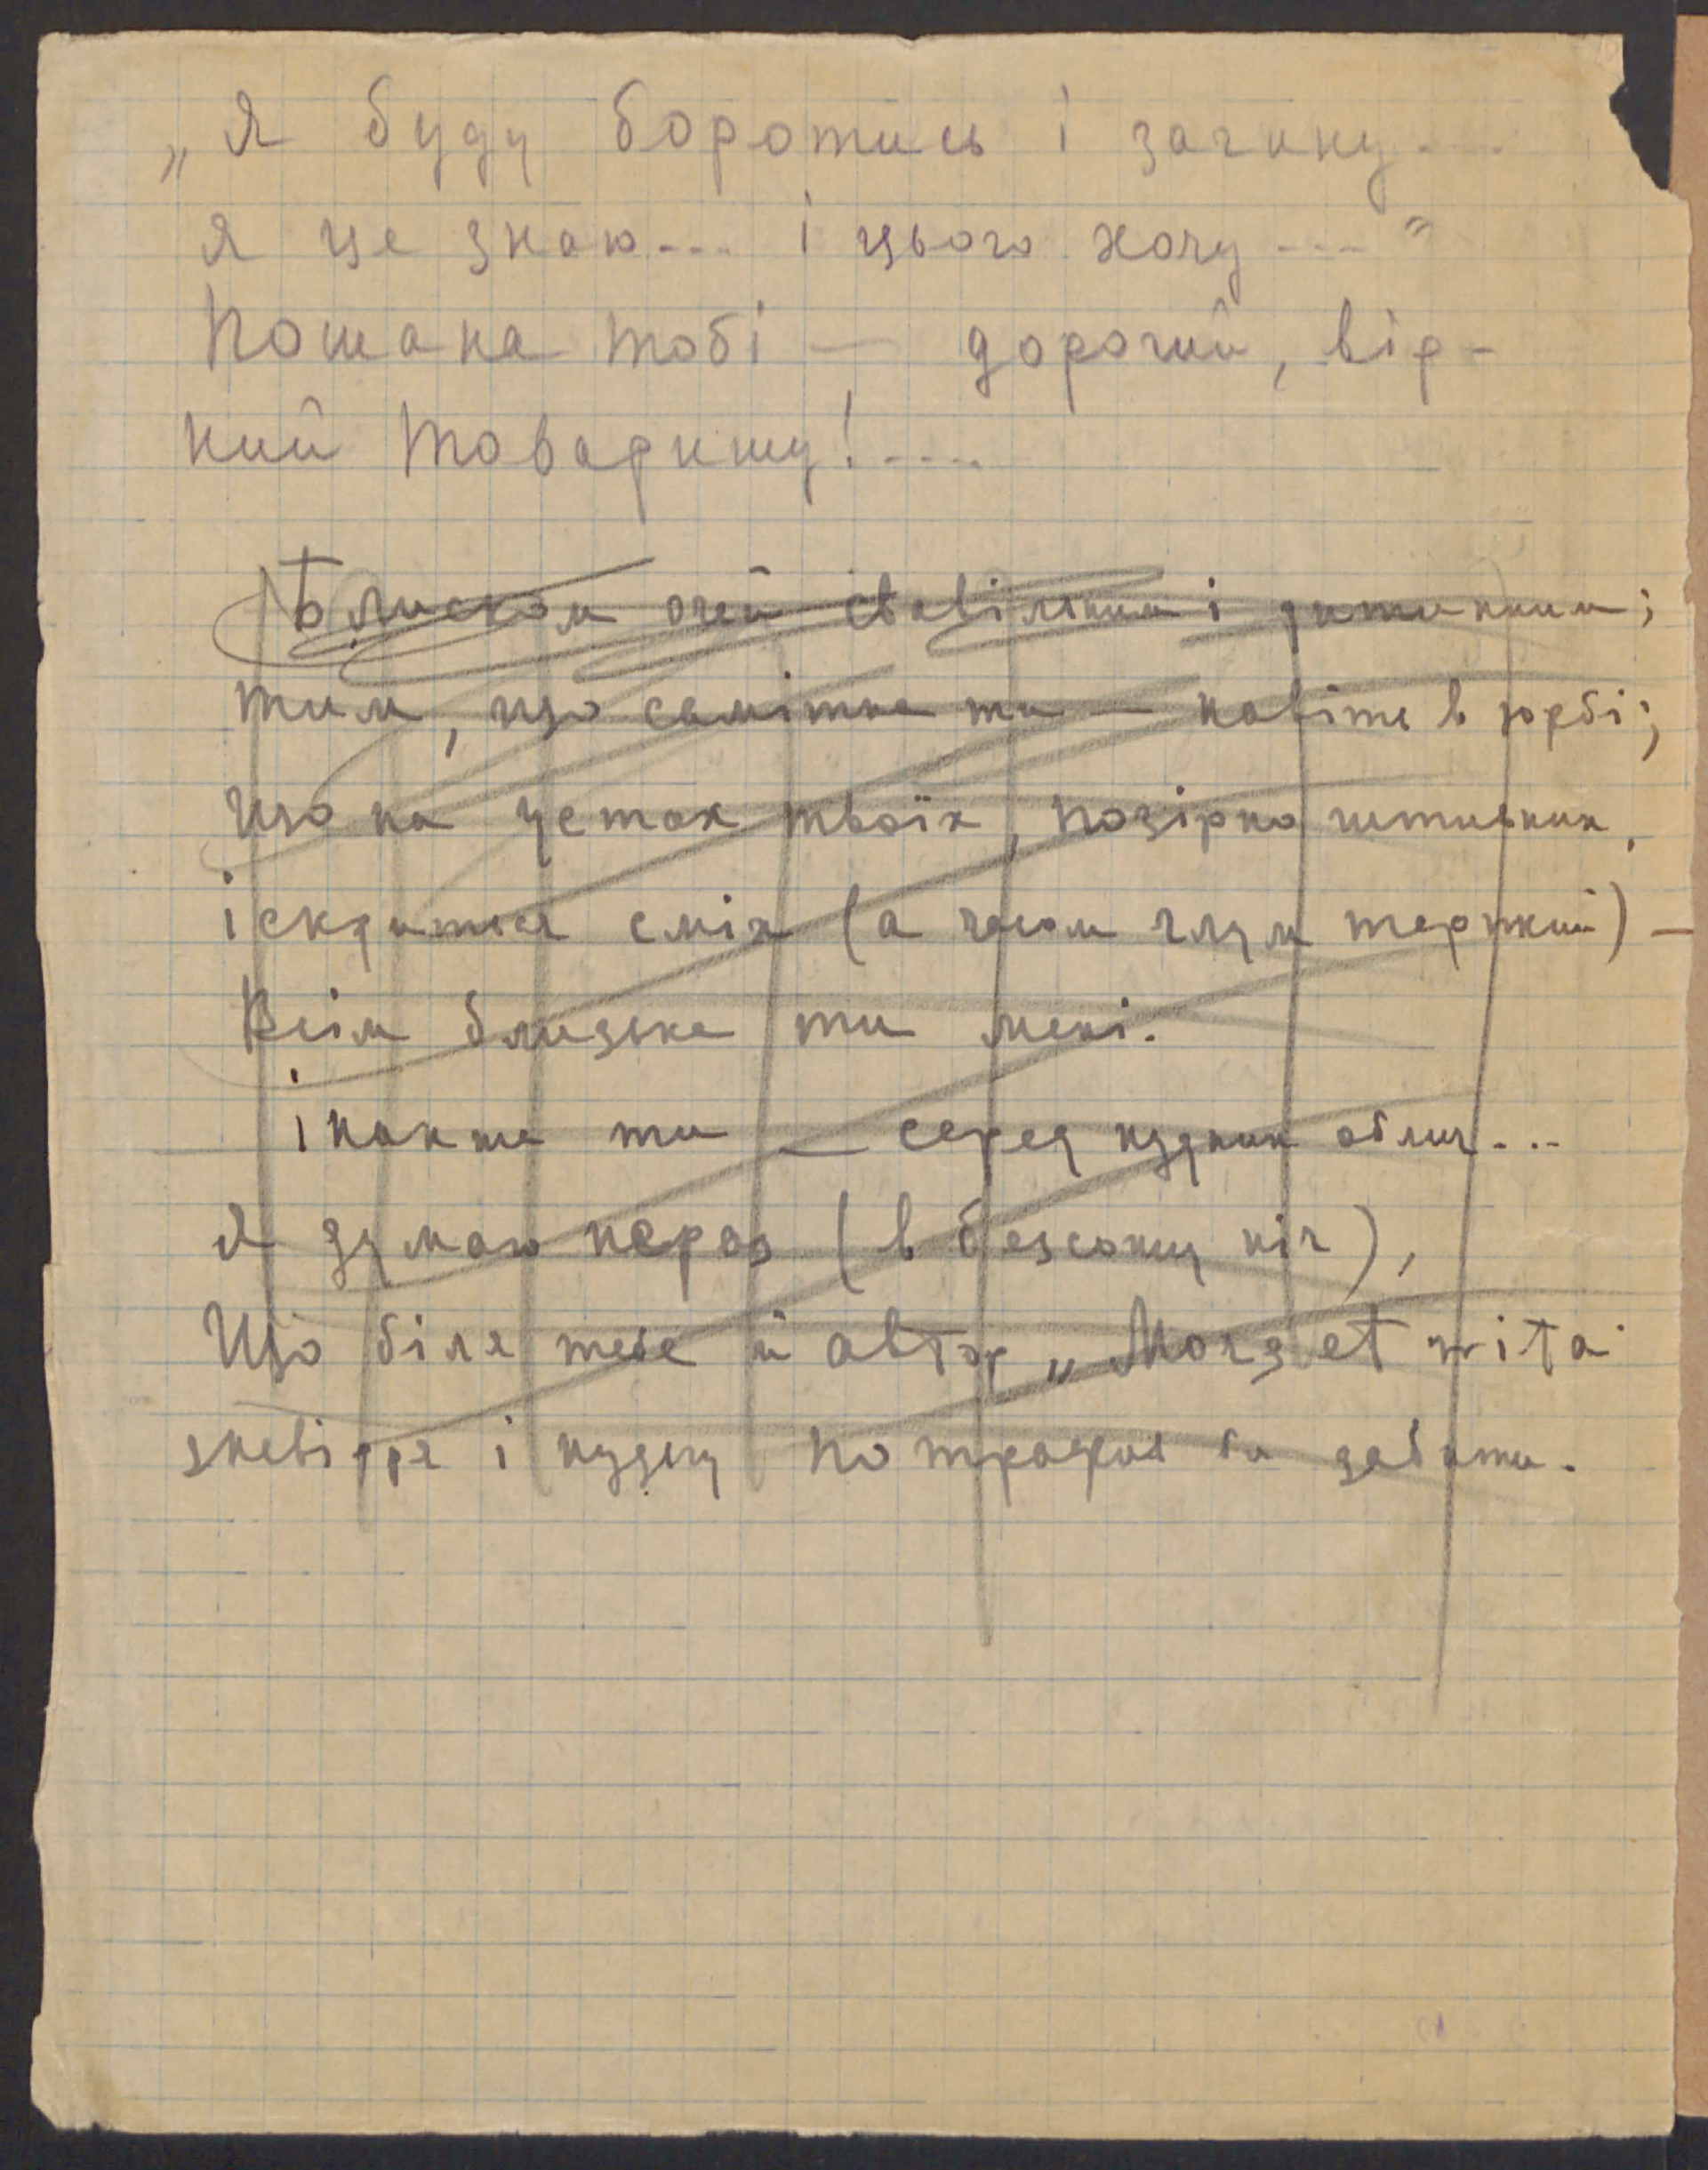 „Я буду боротись і загину....
я це знаю... і цього хочу...."
Пошана тобі — дорогий, вір-
ний товаришу!....
Блиском очей свавільним і дитинним;
тим, що самітна ти — навіть в юрбі;
що на устах твоїх, позірно чітивних,
іскриться сміх (а часом глум терпкий) —
Всім близька ти мені.
інакша ти — серед нудних облич...
Я думаю нераз (в безсонну ніч),
Що біля тебе й автор „Mors et vita
зневір'я і нудьгу потрафив би забити.